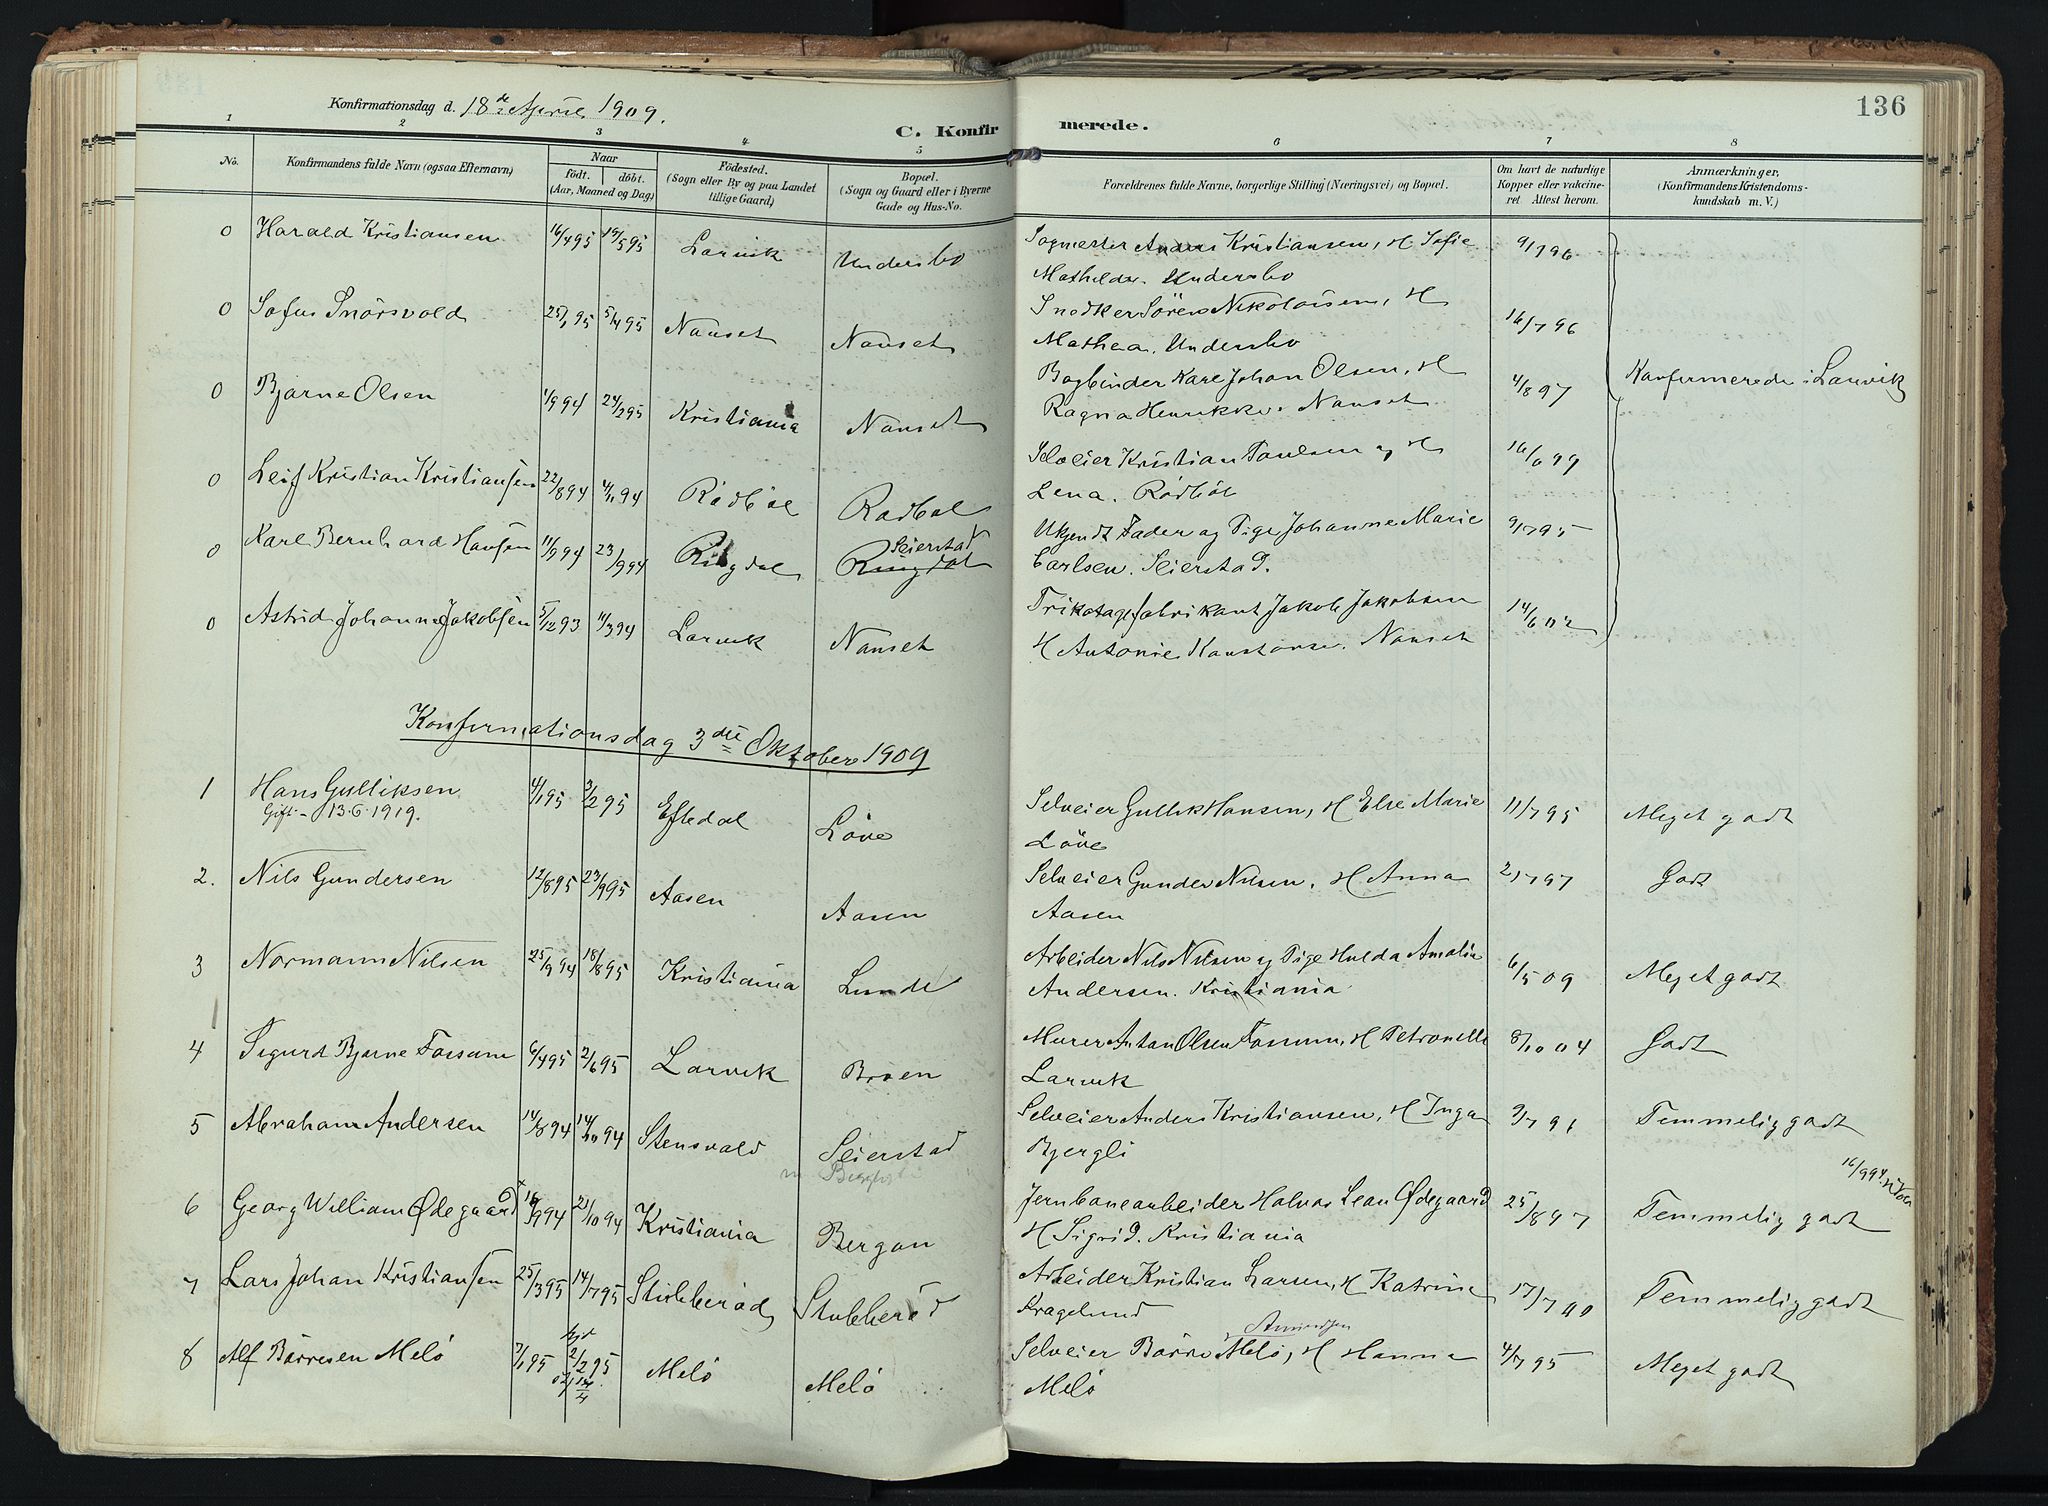 136
Konfirmationsdag d. 18de April 1909.
C. Konfirmerede.
1 2 3 4 5 6 7 8
No.
Konfirmandens fulde Navn (ogsaa Efternavn)
Naar
födt. döbt.
(Aar, Maaned og Dag)
Födested.
(Sogn eller By og paa Landet
tillige Gaard)
Bopæl.
(Sogn og Gaard eller i Byerne
Gade og Hus-No.
Forældrenes fulde Navne, borgerlige Stilling (Næringsvei) og Bopæl.
Om havt de naturlige
Kopper eller vakcine-
ret. Attest herom.
Anmærkninger,
(Konfirmandens Kristendoms-
kundskab m. V.)
0 Harald Kristiansen 16/4 95 19/5 95 Larvik Undersbo Sagmester Anders Kristiansen, H Sofie 9/7 96
Mathilde. Undersbo
0 Sofus Snörsvold 25/1 95 5/4 95 Nanset Nanset Snedker Sören Nikolaisen, H 16/7 96
Mathea. Undersbo
0 Bjarne Olsen 1/9 94 24/2 95 Kristiania Nanset Bogbinder Karl Johan Olsen, H 4/8 97 Konfirmerede i Larvik
Ragna Henrikke. Nanset
0 Leif Kristian Kristiansen 22/8 94 4/11 94 Rödböl Rödböl Selveier Kristian Paulsen og H 99
Lena. Rödböl
0 Karl Bernhard Hansen 11/9 94 23/9 94 Ringdal Seierstad Ringdal Ukjendt Fader og Pige Johanne Marie 9/7 95
Carlsen. Seierstad.
0 Astrid Johanne Jakobsen 5/12 93 11/3 94 Larvik Nanset Trikotagefabrikant Jakob Jakobsen 14/6 02
H Antonie. Nanset
Konfirmationsdag 3die Oktober 1909
1 Hans Gulliksen 4/1 95 3/2 95 Eftedal Löve Selveier Gullik Hansen, H Else Marie 11/7 95 Meget godt
Gift - 13.6.1919. Löve
2. Nils Gundersen 12/8 95 23/9 95 Aasen Aasen Selveier Gunder Nilsen, H Anna 2/7 97 Godt
Aasen
3 Normann Nilsen 25/9 94 18/8 95 Kristiania Lunde Arbeider Nils Nilsen og Pige Hulda Amalia 6/5 09 Meget godt
Andersen. Kristiania
4 Sigurd Bjarne Fossum 6/4 95 2/6 95 Larvik Broen Murer Anton Olsen Fossum, H Petronelle 8/10 04 Godt
Larvik
5 Abraham Andersen 14/8 94 14/10 94 Stensvold Seierstad Selveier Anders Kristiansen, H Inga 9/7 96 Temmelig godt
Bjergli
6 Georg William Ødegaard 94 21/10 94 Kristiania Bergan Jernbanearbeider Halvor Lean Ødegaard 25/8 97 Temmelig godt
H Sigrid. Kristiania
7 Lars Johan Kristiansen 25/3 95 14/7 95 Stubberöd Stubberöd Arbeider Kristian Larsen, H Katrine 17/7 00 Temmelig godt
Kragelund
8 Alf Börresen Melö 7/1 95 hjd 2/2 95 Melö Melö Selveier Börre Amundsen Melö, H Hanna 4/7 95 Meget godt
Melö